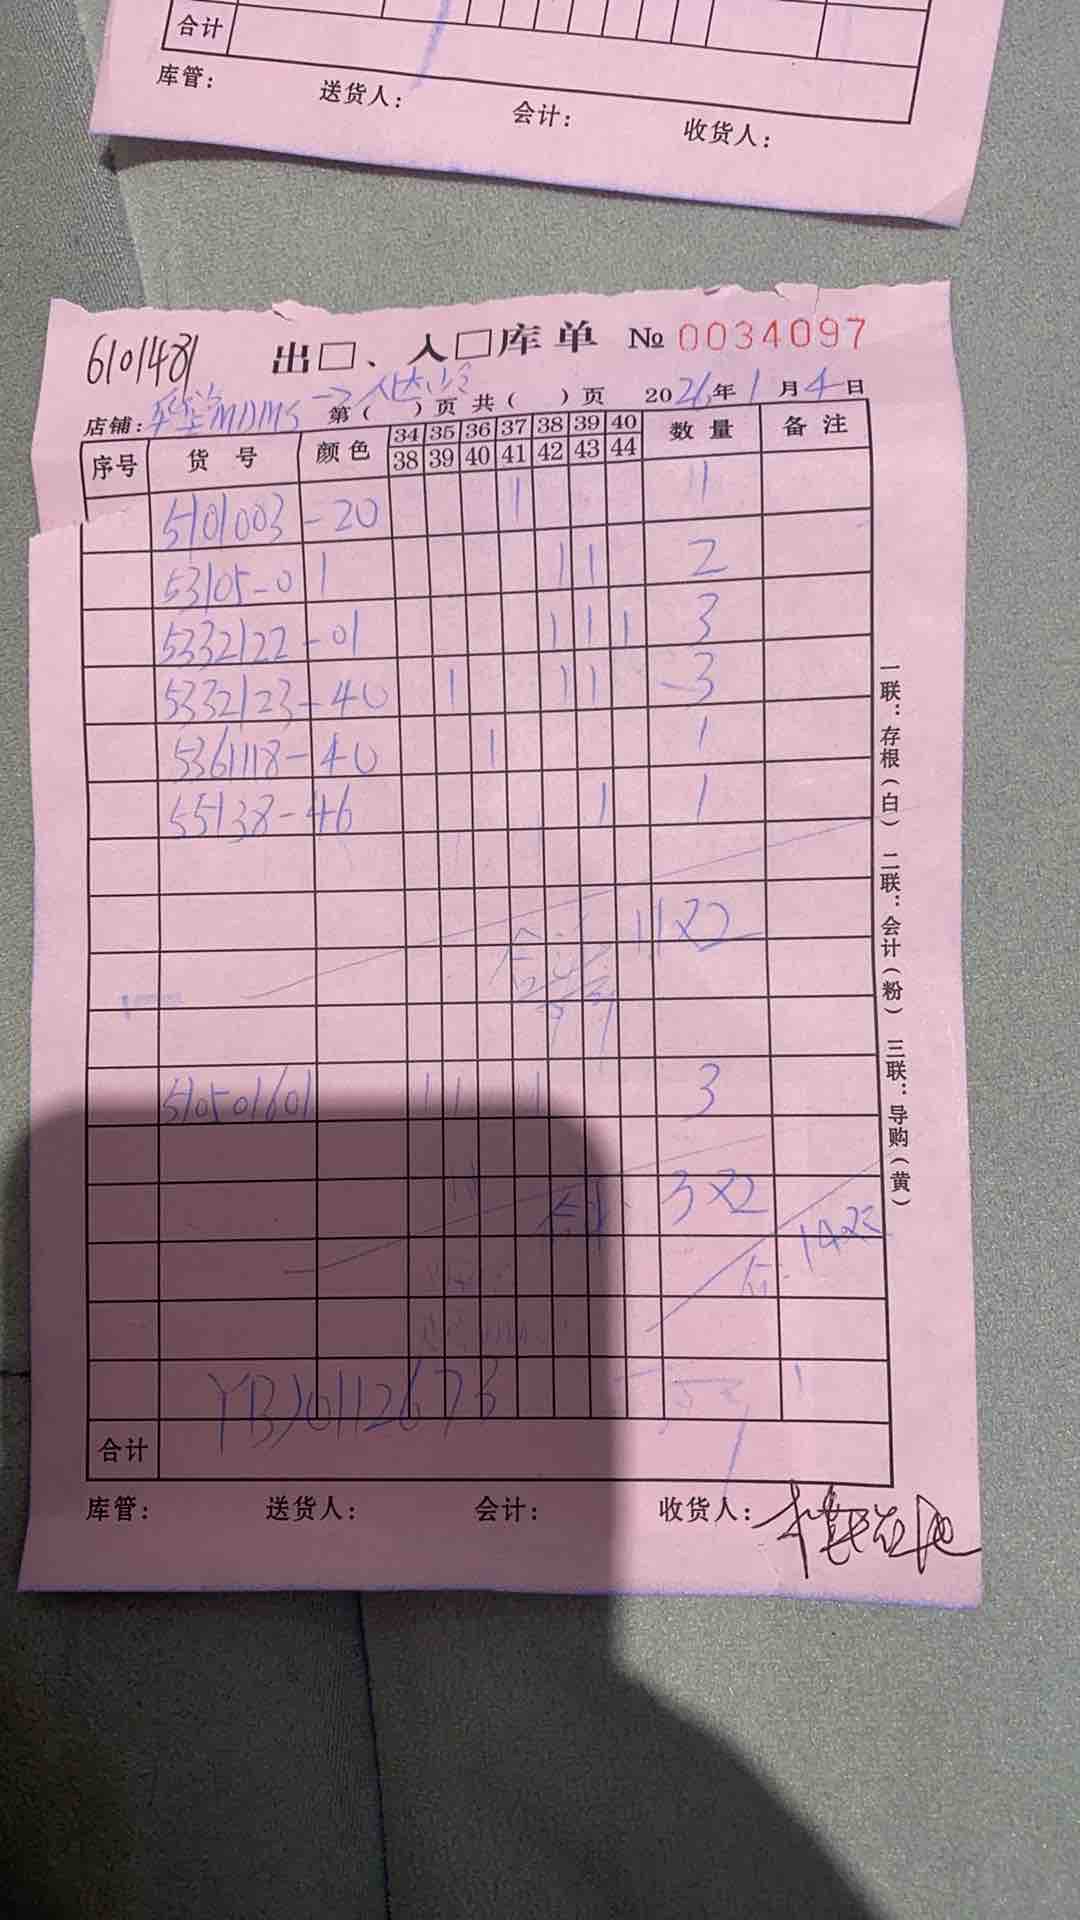 合计
库管： 送货人： 会计： 收货人：
6101481 出□、入□库单 № 0034097
店铺： 第（ ）页 共（ ）页 2026年1月4日
序号 货号 颜色 34 35 36 37 38 39 40 数量 备注
38 39 40 41 42 43 44
5101003-20 1 1
53105-01 1 1 2
5332122-01 1 1 1 3
5332123-40 1 1 1 3
5361118-40 1 1
55138-46 1 1
合计 11双
510501601 1 1 1 3
合计 3双
合 14双
YBJ6112673
合计
库管： 送货人： 会计： 收货人：
一联：存根（白） 二联：会计（粉） 三联：导购（黄）